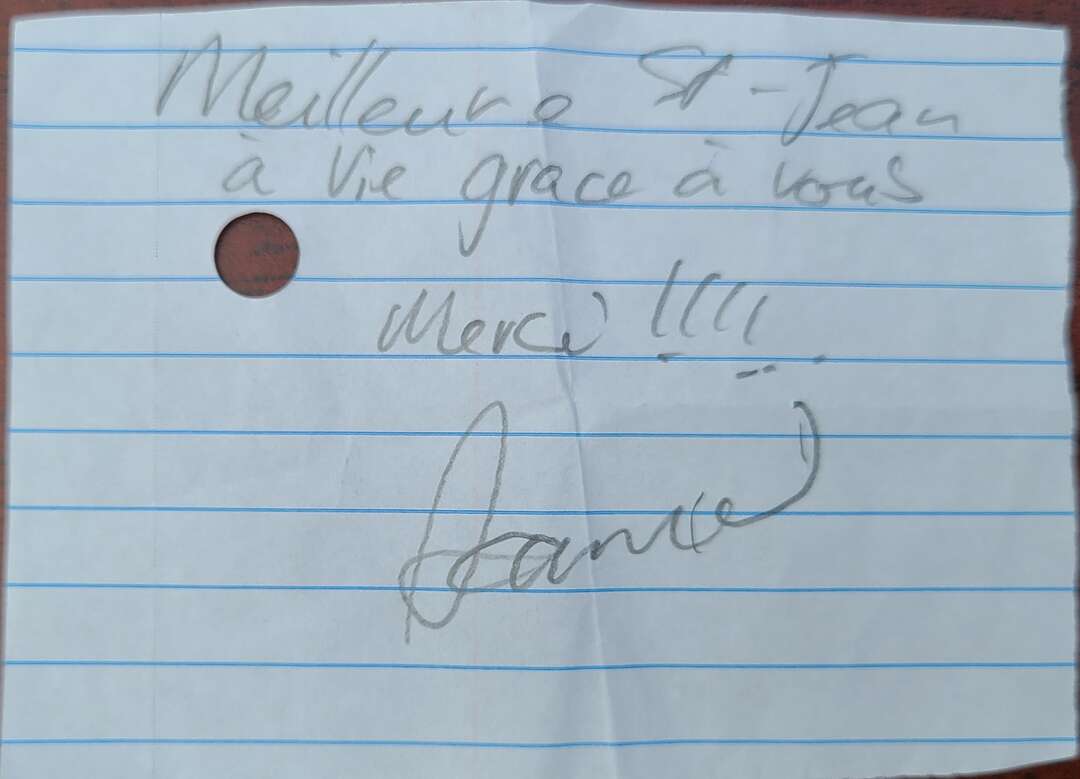 Meilleure St-Jean
à vie grace à vous
Merci !!!!